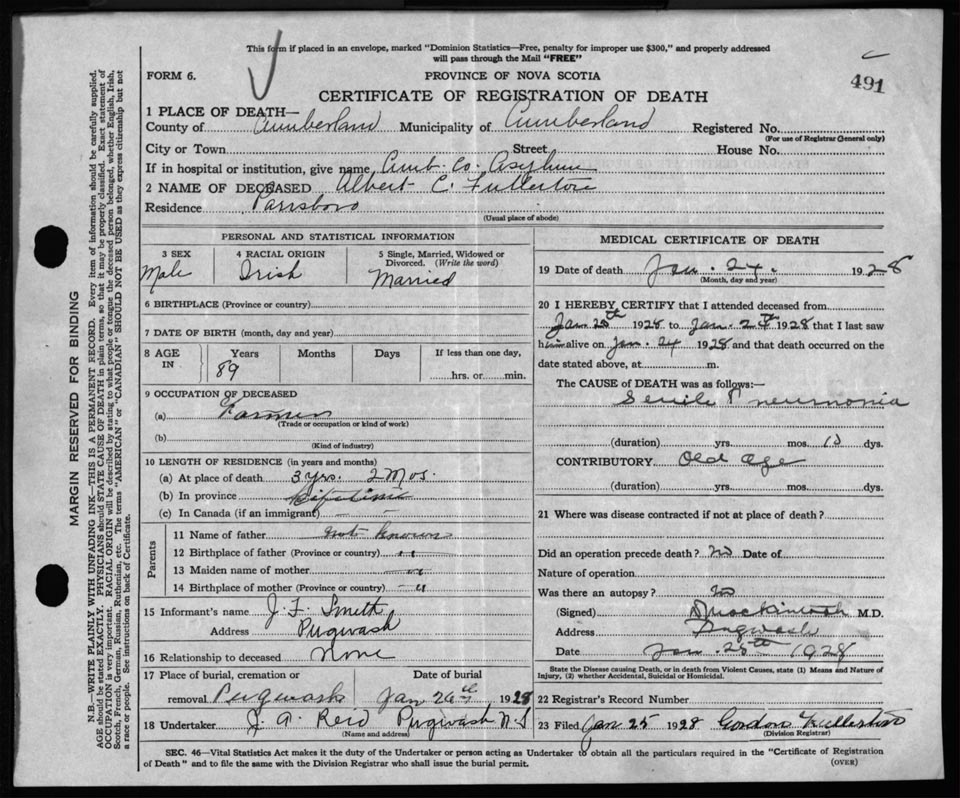 This form if placed in an envelope, marked "Dominion Statistics—Free, penalty for improper use $300," and properly addressed
will pass through the Mail "FREE"
FORM 6.
PROVINCE OF NOVA SCOTIA
491
CERTIFICATE OF REGISTRATION OF DEATH
1 PLACE OF DEATH—
County of Cumberland Municipality of Cumberland Registered No.
(For use of Registrar General only)
City or Town Street House No.
If in hospital or institution, give name Cumb. Co. Asylum
2 NAME OF DECEASED Albert C. Fullerton
Residence Parrsboro
(Usual place of abode)
PERSONAL AND STATISTICAL INFORMATION
3 SEX 4 RACIAL ORIGIN 5 Single, Married, Widowed or
Divorced. (Write the word)
Male Irish Married
6 BIRTHPLACE (Province or country)
7 DATE OF BIRTH (month, day and year)
8 AGE IN Years Months Days If less than one day,
89 hrs. or min.
9 OCCUPATION OF DECEASED
(a) Farmer
(Trade or occupation or kind of work)
(b)
(Kind of industry)
10 LENGTH OF RESIDENCE (in years and months)
(a) At place of death 3 yrs. 2 Mos.
(b) In province Lifetime
(c) In Canada (if an immigrant) –
Parents
11 Name of father not known
12 Birthplace of father (Province or country) " "
13 Maiden name of mother "
14 Birthplace of mother (Province or country) "
15 Informant's name J. F. Smith
Address Pugwash
16 Relationship to deceased None
17 Place of burial, cremation or Date of burial
removal Pugwash Jan 26th 1928
18 Undertaker J. A. Reid Pugwash N.S
(Name and address)
MEDICAL CERTIFICATE OF DEATH
19 Date of death Jan. 24. 1928
(Month, day and year)
20 I HEREBY CERTIFY that I attended deceased from
Jan 1928 to Jan. 24 1928 that I last saw
him alive on Jan. 24 1928 and that death occurred on the
date stated above, at m.
The CAUSE OF DEATH was as follows:—
Senile Pneumonia
(duration) yrs. mos. 10 dys.
CONTRIBUTORY Old Age
(duration) yrs. mos. dys.
21 Where was disease contracted if not at place of death?
Did an operation precede death? No Date of
Nature of operation
Was there an autopsy? No
(Signed) Mackintosh M.D.
Address Pugwash
Date Jan. 25th 1928
State the Disease causing Death, or in death from Violent Causes, state (1) Means and Nature of
Injury, (2) whether Accidental, Suicidal or Homicidal.
22 Registrar's Record Number
23 Filed Jan 25 1928 Gordon Fullerton
(Division Registrar)
SEC. 46—Vital Statistics Act makes it the duty of the Undertaker or person acting as Undertaker to obtain all the particulars required in the "Certificate of Registration
of Death" and to file the same with the Division Registrar who shall issue the burial permit.
(OVER)
MARGIN RESERVED FOR BINDING
N.B.—WRITE PLAINLY WITH UNFADING INK—THIS IS A PERMANENT RECORD. Every item of information should be carefully supplied.
AGE should be stated EXACTLY. PHYSICIANS should STATE CAUSE OF DEATH in plain terms, so that it may be properly classified. Exact statement of
OCCUPATION is very important. RACIAL ORIGIN will be described by stating to what people or tongue the deceased person belonged, whether English, Irish,
Scotch, French, German, Russian, Ruthenian, etc. The terms "AMERICAN" or "CANADIAN" SHOULD NOT BE USED as they express citizenship but not
a race or people. See instructions on back of Certificate.